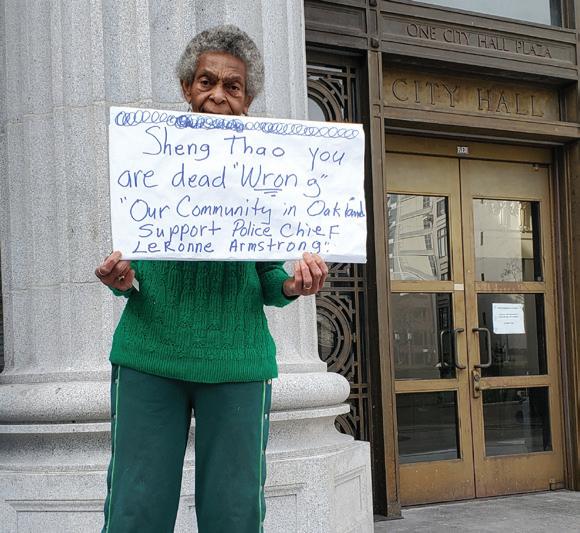 ONE CITY HALL PLAZA
CITY HALL
Sheng Thao you
are dead "Wrong"
"Our Community in Oakland
Support Police Chief
LeRonne Armstrong".